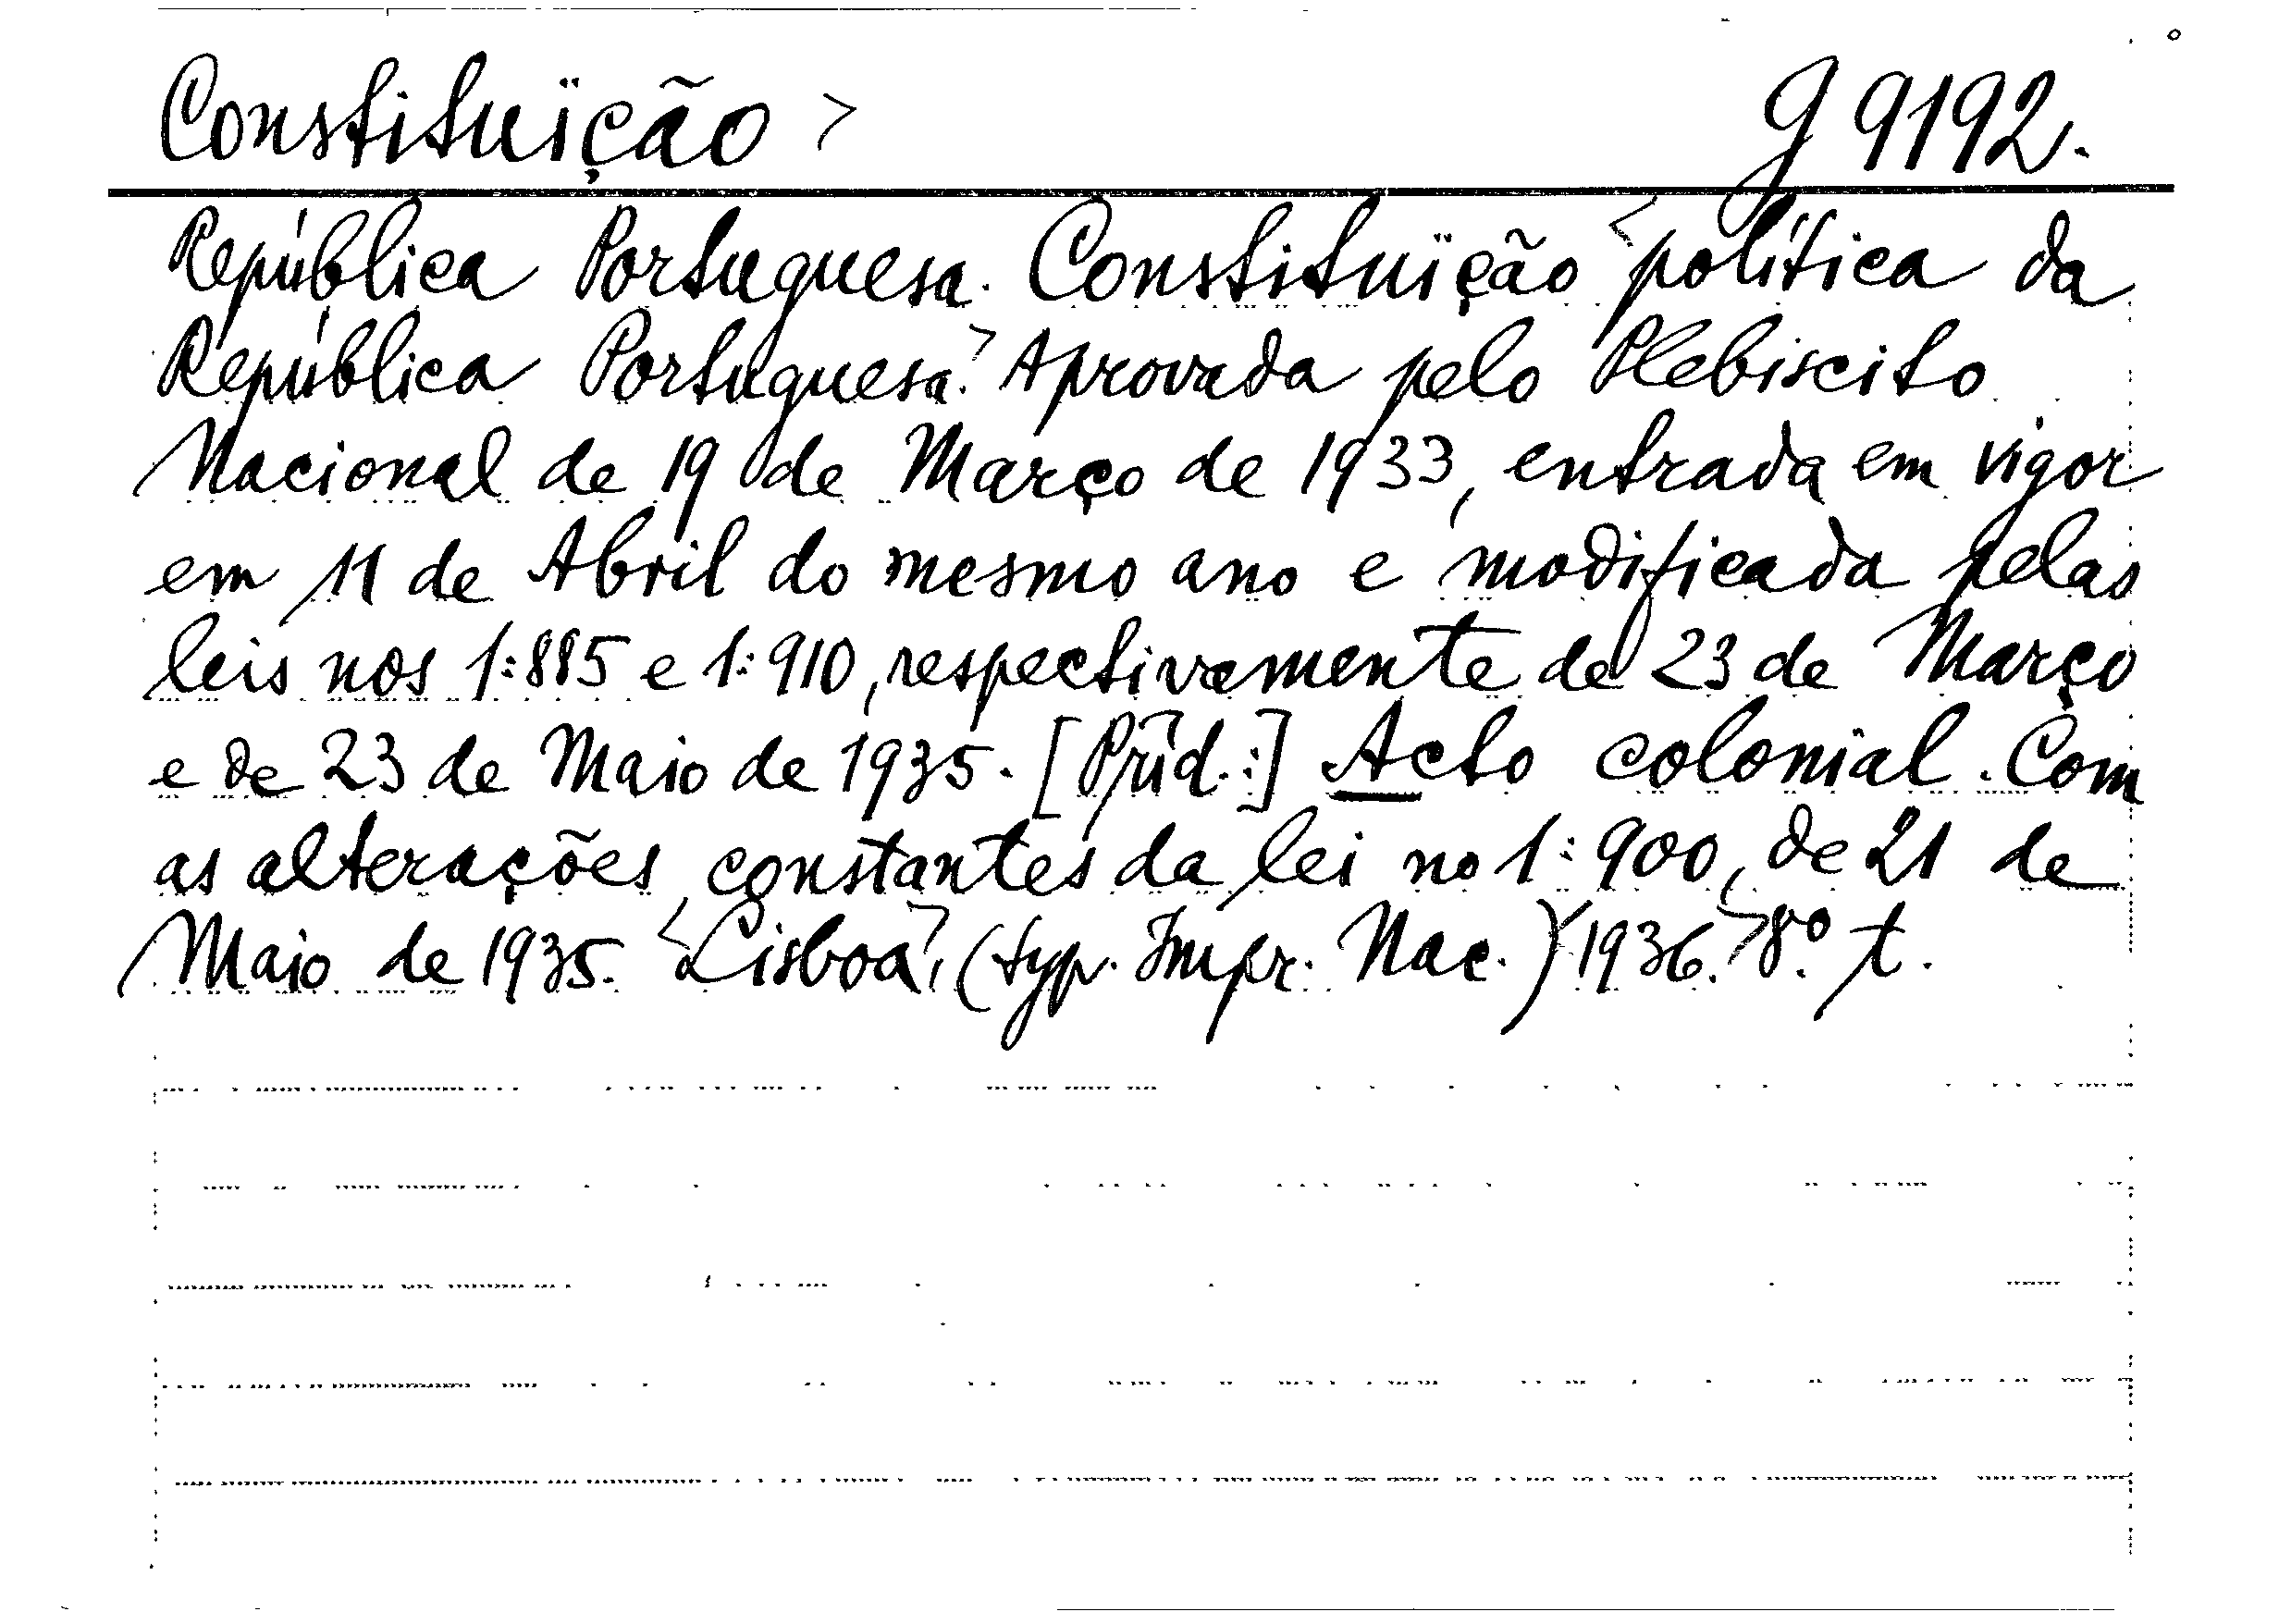 Constituïção > g 9192.
República Portuguesa. Constituïção <política da
República Portuguesa.> Aprovada pelo Plebiscito
Nacional de 19 de Março de 1933, entrada em vigor
em 11 de Abril do mesmo ano e modificada pelas
leis nos 1:885 e 1:910, respectivamente de 23 de Março
e de 23 de Maio de 1935. [Prũd.:] Acto colonial. Com
as alterações constantes da lei no 1:900, de 21 de
Maio de 1935. <Lisboa>, (typ. Impr. Nac.) <1936.> 8º. t.